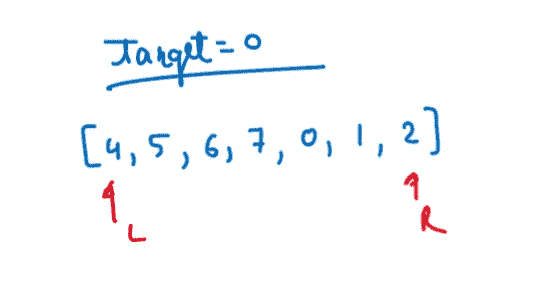 Target = 0
[4, 5, 6, 7, 0, 1, 2]
L R